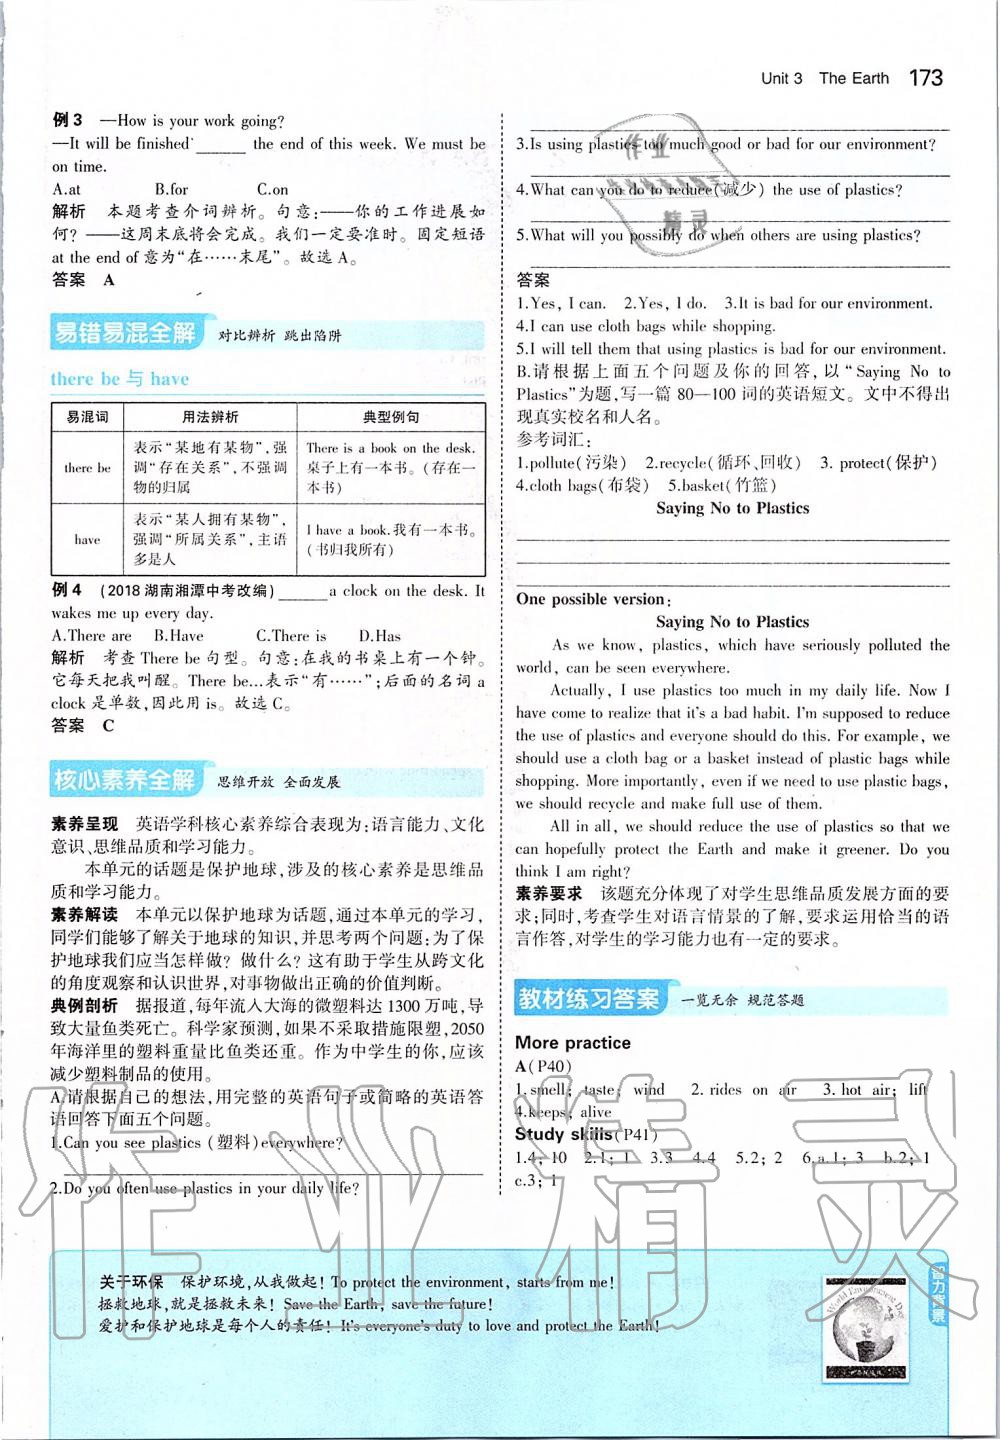 Unit 3 The Earth 173
例 3 —How is your work going?
—It will be finished ______ the end of this week. We must be
on time.
A.at B.for C.on
解析 本题考查介词辨析。句意:——你的工作进展如
何? ——这周末底将会完成。我们一定要准时。固定短语
at the end of 意为“在……末尾”。故选 A。
答案 A
易错易混全解 对比辨析 跳出陷阱
there be 与 have
易混词 用法辨析 典型例句
there be 表示“某地有某物”,强
调“存在关系”,不强调
物的归属
There is a book on the desk.
桌子上有一本书。(存在一
本书)
have 表示“某人拥有某物”,
强调“所属关系”,主语
多是人
I have a book.我有一本书。
(书归我所有)
例 4 (2018 湖南湘潭中考改编)______a clock on the desk. It
wakes me up every day.
A.There are B.Have C.There is D.Has
解析 考查 There be 句型。句意:在我的书桌上有一个钟。
它每天把我叫醒。There be…表示“有……”;后面的名词 a
clock 是单数,因此用 is。故选 C。
答案 C
核心素养全解 思维开放 全面发展
素养呈现 英语学科核心素养综合表现为:语言能力、文化
意识、思维品质和学习能力。
本单元的话题是保护地球,涉及的核心素养是思维品
质和学习能力。
素养解读 本单元以保护地球为话题,通过本单元的学习,
同学们能够了解关于地球的知识,并思考两个问题:为了保
护地球我们应当怎样做? 做什么? 这有助于学生从跨文化
的角度观察和认识世界,对事物做出正确的价值判断。
典例剖析 据报道,每年流入大海的微塑料达 1300 万吨,导
致大量鱼类死亡。科学家预测,如果不采取措施限塑,2050
年海洋里的塑料重量比鱼类还重。作为中学生的你,应该
减少塑料制品的使用。
A.请根据自己的想法,用完整的英语句子或简略的英语答
语回答下面五个问题。
1.Can you see plastics (塑料)everywhere?
2.Do you often use plastics in your daily life?
3.Is using plastics too much good or bad for our environment?
4.What can you do to reduce(减少) the use of plastics?
5.What will you possibly do when others are using plastics?
答案
1.Yes, I can. 2.Yes, I do. 3.It is bad for our environment.
4.I can use cloth bags while shopping.
5.I will tell them that using plastics is bad for our environment.
B.请根据上面五个问题及你的回答,以“Saying No to
Plastics”为题,写一篇 80—100 词的英语短文。文中不得出
现真实校名和人名。
参考词汇:
1.pollute(污染) 2.recycle(循环、回收) 3. protect(保护)
4.cloth bags(布袋) 5.basket(竹篮)
Saying No to Plastics
One possible version:
Saying No to Plastics
As we know, plastics, which have seriously polluted the
world, can be seen everywhere.
Actually, I use plastics too much in my daily life. Now I
have come to realize that it's a bad habit. I'm supposed to reduce
the use of plastics and everyone should do this. For example, we
should use a cloth bag or a basket instead of plastic bags while
shopping. More importantly, even if we need to use plastic bags,
we should recycle and make full use of them.
All in all, we should reduce the use of plastics so that we
can hopefully protect the Earth and make it greener. Do you
think I am right?
素养要求 该题充分体现了对学生思维品质发展方面的要
求;同时,考查学生对语言情景的了解,要求运用恰当的语
言作答,对学生的学习能力也有一定的要求。
教材练习答案 一览无余 规范答题
More practice
A(P40)
1.smell; taste; wind 2.rides on air 3.hot air; lift
4.keeps; alive
Study skills(P41)
1.4; 10 2.1; 1 3.3 4.4 5.2; 2 6.a.1; 3 b.2; 1
c.3; 1
关于环保 保护环境,从我做起! To protect the environment, starts from me!
拯救地球,就是拯救未来! Save the Earth, save the future!
爱护和保护地球是每个人的责任! It's everyone's duty to love and protect the Earth!
World Environment Day
智力背景
作业精灵
作业
精灵